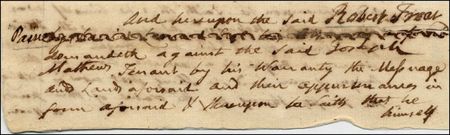 And hereupon the said Robert Frost
demandeth against the said Joseph
Mathews Tenant by his Warranty the Messuage
and Lands aforesaid and their appurtenances in
form aforesaid & thereupon he saith that he
himself